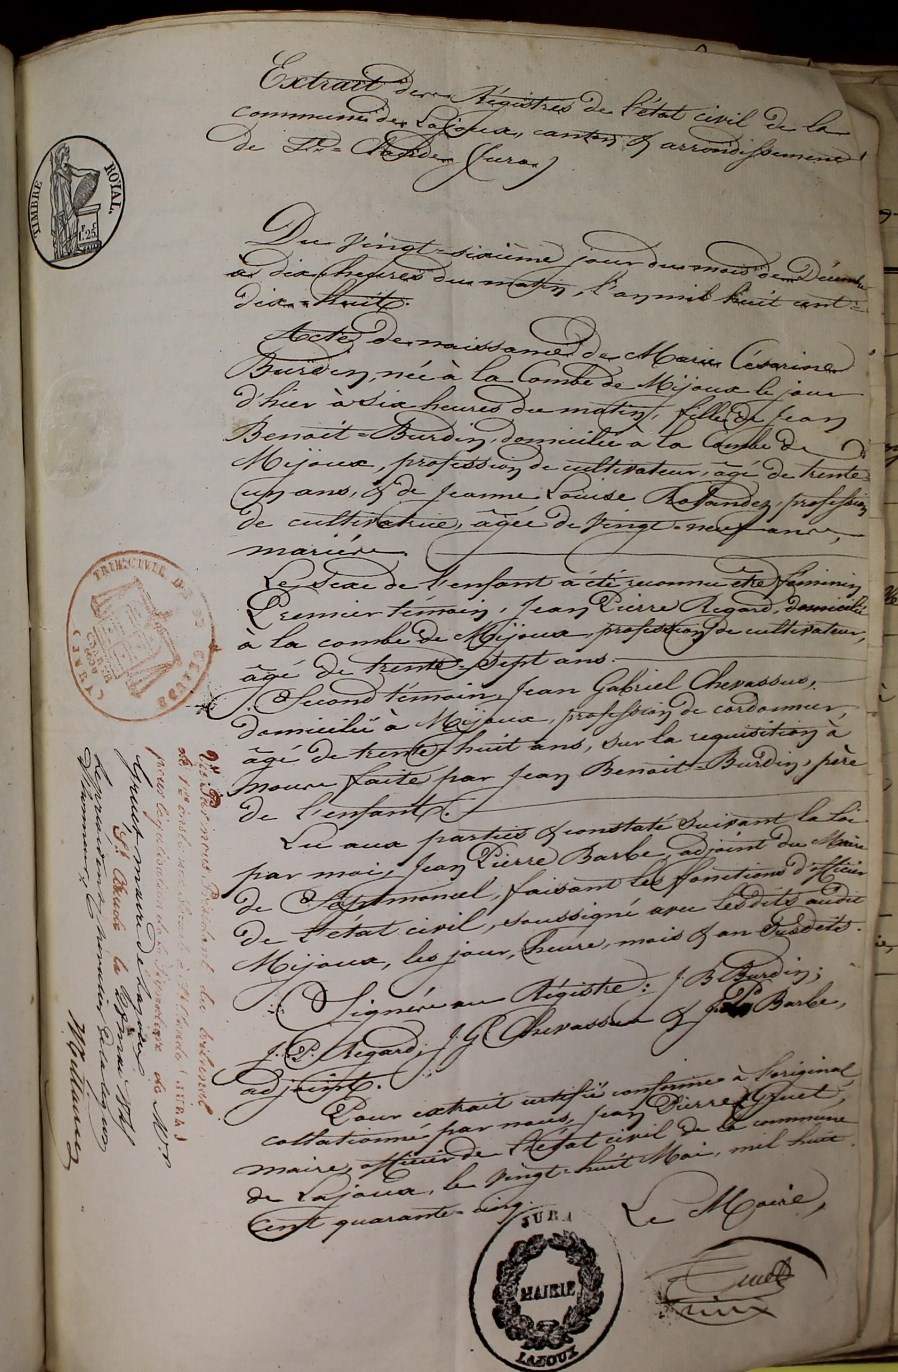 Extrait des Régistres de l'état civil de la
commune de Lajoux, canton & arrondissement
de St.=Claude (Jura)
TIMBRE ROYAL.
1f 25c
Du vingt=sixième jour du mois de Décembre
à dix heures du matin, l'an mil huit cent=
dix=huit.
Acte de naissance de Marie Césarine
Burdin, née à la Combe de Mijoux le jour
d'hier à six heures du matin, fille de Jean
Benoit=Burdin, domicilié à la Combe de
Mijoux, profession de cultivateur, âgé de trente
un ans, & de Jeanne Louise Rolandez, profession
de cultivatrice, âgée de vingt=neuf ans,
mariés
Le sexe de l'enfant a été reconnu être féminin
Premier témoin, Jean Pierre Regard, domicilié
à la combe de Mijoux profession de cultivateur,
âgé de trente=sept ans.
Second témoin, Jean Gabriel Chevassus,
domicilié à Mijoux, profession de cordonnier,
âgé de trente huit ans, sur la requisition à
nous faite par Jean Benoit=Burdin, père
de l'enfant.
Lu aux parties & constaté suivant la Loi
par moi, Jean Pierre Barbe, adjoint du Maire
de Septmoncel, faisant les fonctions d'officier
de l'état civil, soussigné avec lesdits audit
Mijoux, les jour, heure, mois & an susdits.
Signés au Régistre: J B Burdin;
J. P. Regard; J G Chevassus & J P Barbe,
adjoint.
Pour extrait certifié conforme à l'original
collationné par nous, Jean Pierre Gruet,
maire officier de l'état civil de la commune
de Lajoux, le vingt=huit Mai, mil huit
cent quarante=cinq.
Le Maire,
Gruet
JURA
MAIRIE
LAJOUX
TRIB. CIVIL DE ST CLAUDE
(JURA)
Vu par nous Président du tribunal
de 1re instance séant à St Claude (JURA)
pour légalisation de la signature de Mr
Gruet, maire de Lajoux
St Claude le